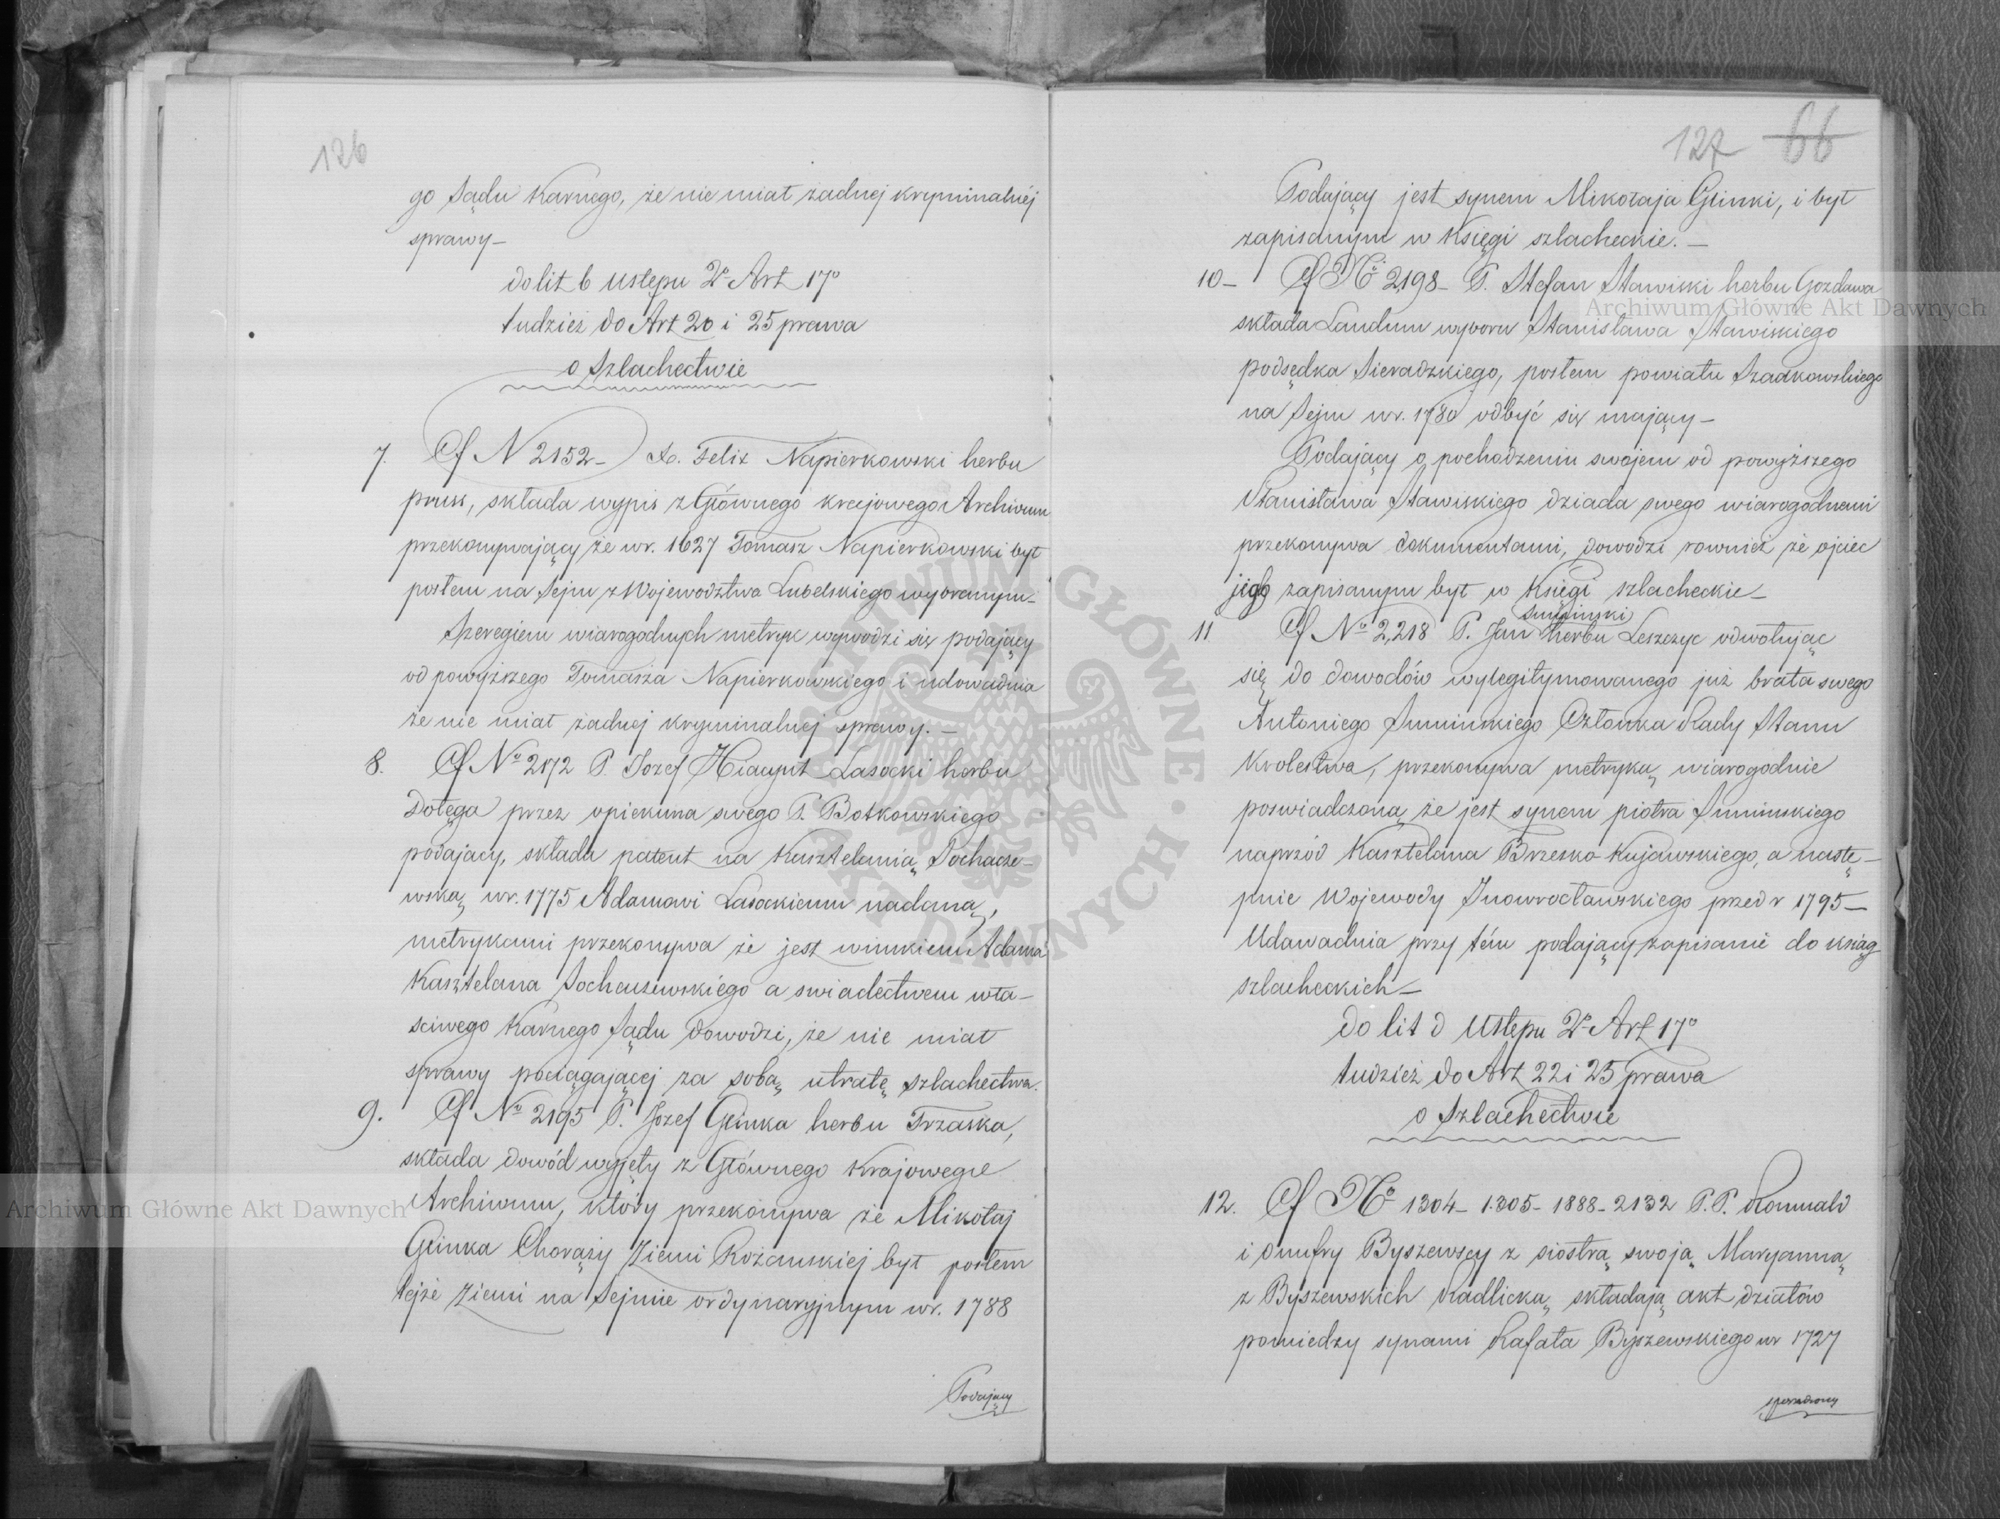 126
go Sądu Karnego, że nie miał żadnej kryminalnéj
sprawy—
do lit b Ustępu 2º Art 17º
tudzież do Art 20 i 25 prawa
o Szlachectwie
7. Cf N 2152— X. Felix Napierkowski herbu
pruss, składa wypis z Głównego krajowego Archivum
przekonywający że wr. 1627 Tomasz Napierkowski był
posłem na Sejm z Województwa Lubelskiego wybranym—
Szeregiem wiarogodnych metryk wywodzi się podający
od powyższego Tomasza Napierkowskiego i udowadnia
że nie miał żadnej kryminalnej sprawy.—
8. Cf Nº 2172 P. Jozef Hiacynt Lasocki herbu
Dołęga przez opiekuna swego P. Botkowskiego
podający, składa patent na Kasztelanią Sochacze-
wską wr. 1775 Adamowi Lasockiemu nadaną,
metrykami przekonywa że jest wnukiem Adama
Kasztelana Sochaczewskiégo a swiadectwem wła-
sciwego Karnego Sądu dowodzi, że nie miał
sprawy pociągającej za sobą utratę szlachectwa.
9. Cf Nº 2195 P. Jozef Glinka herbu Trzaska,
składa dowód wyjęty z Głównego Krajowego
Archivum, który przekonywa że Mikołaj
Glinka Chorąży Ziemi Rożanskiéj był posłem
tejże Ziemi na Sejmie ordynaryjnym wr. 1788
Podający
127 66
Podający jest synem Mikołaja Glinki, i był
zapisanym w Księgi szlacheckie.—
10— Cf Nº 2,198— P. Stefan Stawiski herbu Gozdawa
składa Laudum wyboru Stanisława Stawiskiego
podsędka Sieradzkiego, posłem powiatu Szadkowskiego
na Sejm wr. 1780 odbyć się mający—
Podający o pochodzeniu swojem od powyższego
Stanisława Stawiskiego dziada swego wiarogodnemi
przekonywa dokumentami, dowodzi rownież że ojciec
jego zapisanym był w Księgi szlacheckie—
Sumiński
11 Cf Nº 2,218 P. Jan herbu Leszczyc odwołując
się do dowodów wylegitymowanego już brata swego
Antoniego Suminskiego Członka Rady Stanu
Krolestwa, przekonywa metryką wiarogodnie
poswiadczoną że jest synem piotra Suminskiego
naprzód Kasztelana Brzesko Kujawskiego, a nastę-
pnie Wojewody Inowrocławskiego przed r 1795—
Udawadnia przy tém podający zapisanie do ksiąg
szlacheckich—
do lit d Ustępu 2º Art 17º
tudzież do Art 22 i 25 prawa
o Szlachectwie
12. Cf Nº 1304— 1305— 1888— 2132 P.P. Romuald
i Onufry Byszewscy z siostrą swoją Maryanną
z Byszewskich Radlicką składają akt działów
pomiedzy synami Rafała Byszewskiego wr 1727
sporządzony
Archiwum Główne Akt Dawnych
Archiwum Główne Akt Dawnych
ARCHIWUM GŁÓWNE AKT DAWNYCH